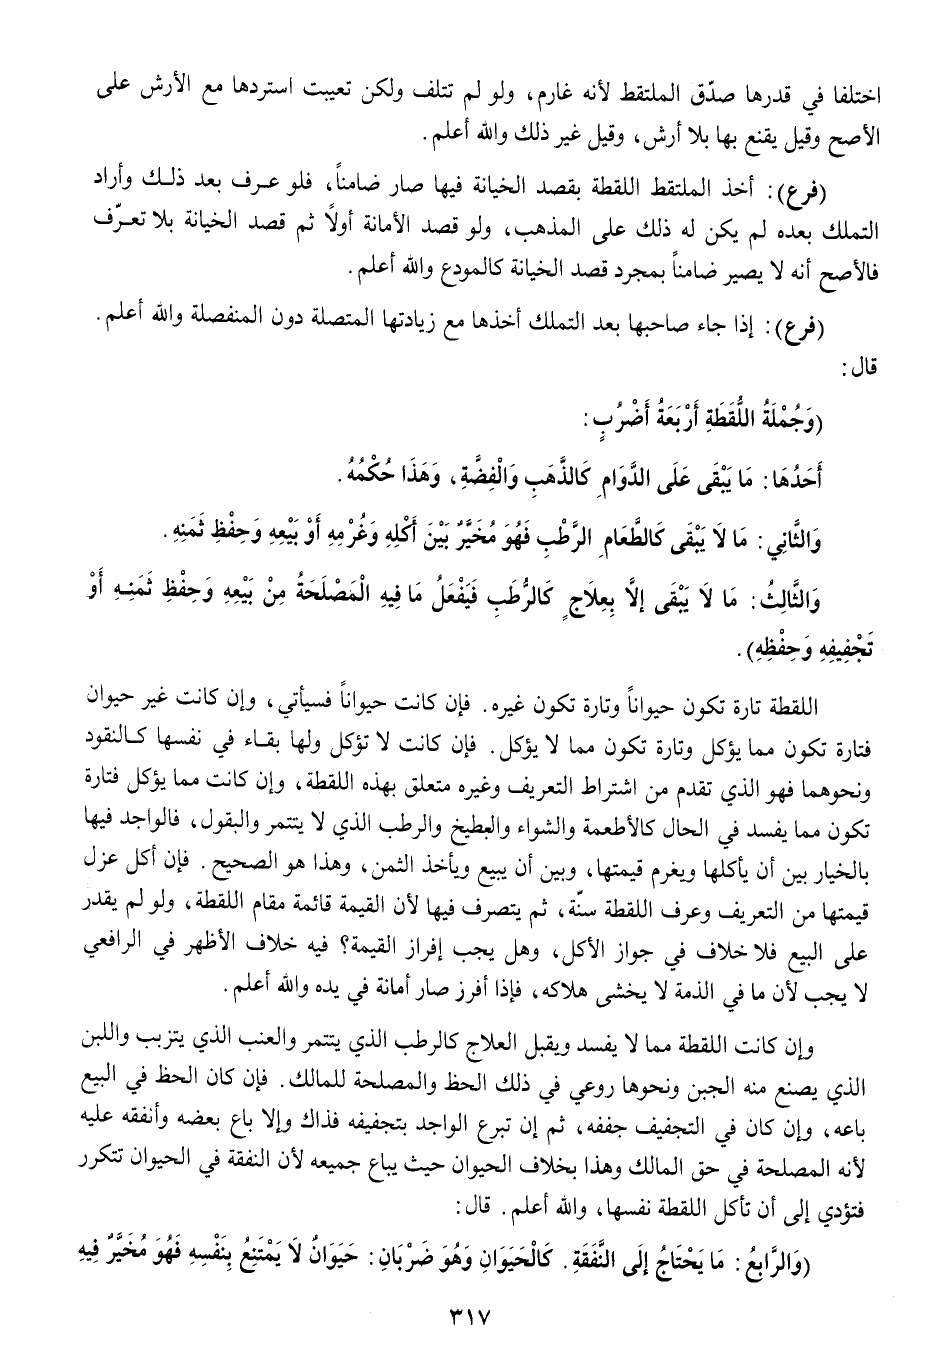 اختلفا في قدرها صدّق الملتقط لأنه غارم، ولو لم تتلف ولكن تعيبت استردها مع الأرش على
الأصح وقيل يقنع بها بلا أرش، وقيل غير ذلك والله أعلم.
(فرع): أخذ الملتقط اللقطة بقصد الخيانة فيها صار ضامناً، فلو عرف بعد ذلك وأراد
التملك بعده لم يكن له ذلك على المذهب، ولو قصد الأمانة أولاً ثم قصد الخيانة بلا تعرّف
فالأصح أنه لا يصير ضامناً بمجرد قصد الخيانة كالمودع والله أعلم.
(فرع): إذا جاء صاحبها بعد التملك أخذها مع زيادتها المتصلة دون المنفصلة والله أعلم.
قال:
(وَجُمْلَةُ اللُّقَطَةِ أَرْبَعَةُ أَضْرُبٍ:
أَحَدُهَا: مَا يَبْقَى عَلَى الدَّوَامِ كَالذَّهَبِ وَالْفِضَّةِ، وَهَذَا حُكْمُهُ.
وَالثَّانِي: مَا لَا يَبْقَى كَالطَّعَامِ الرَّطْبِ فَهُوَ مُخَيَّرٌ بَيْنَ أَكْلِهِ وَغُرْمِهِ أَوْ بَيْعِهِ وَحِفْظِ ثَمَنِهِ.
وَالثَّالِثُ: مَا لَا يَبْقَى إلَّا بِعِلَاجٍ كَالرُّطَبِ فَيَفْعَلُ مَا فِيهِ الْمَصْلَحَةُ مِنْ بَيْعِهِ وَحِفْظِ ثَمَنِهِ أَوْ
تَجْفِيفِهِ وَحِفْظِهِ).
اللقطة تارة تكون حيواناً وتارة تكون غيره. فإن كانت حيواناً فسيأتي، وإن كانت غير حيوان
فتارة تكون مما يؤكل وتارة تكون مما لا يؤكل. فإن كانت لا تؤكل ولها بقاء في نفسها كالنقود
ونحوهما فهو الذي تقدم من اشتراط التعريف وغيره متعلق بهذه اللقطة، وإن كانت مما يؤكل فتارة
تكون مما يفسد في الحال كالأطعمة والشواء والبطيخ والرطب الذي لا يتتمر والبقول، فالواجد فيها
بالخيار بين أن يأكلها ويغرم قيمتها، وبين أن يبيع ويأخذ الثمن، وهذا هو الصحيح. فإن أكل عزل
قيمتها من التعريف وعرف اللقطة سنّة، ثم يتصرف فيها لأن القيمة قائمة مقام اللقطة، ولو لم يقدر
على البيع فلا خلاف في جواز الأكل، وهل يجب إفراز القيمة؟ فيه خلاف الأظهر في الرافعي
لا يجب لأن ما في الذمة لا يخشى هلاكه، فإذا أفرز صار أمانة في يده والله أعلم.
وإن كانت اللقطة مما لا يفسد ويقبل العلاج كالرطب الذي يتتمر والعنب الذي يتزبب واللبن
الذي يصنع منه الجبن ونحوها روعي في ذلك الحظ والمصلحة للمالك. فإن كان الحظ في البيع
باعه، وإن كان في التجفيف جففه، ثم إن تبرع الواجد بتجفيفه فذاك وإلا باع بعضه وأنفقه عليه
لأنه المصلحة في حق المالك وهذا بخلاف الحيوان حيث يباع جميعه لأن النفقة في الحيوان تتكرر
فتؤدي إلى أن تأكل اللقطة نفسها، والله أعلم. قال:
(وَالرَّابِعُ: مَا يَحْتَاجُ إلَى النَّفَقَةِ. كَالْحَيَوَانِ وَهُوَ ضَرْبَانِ: حَيَوَانٌ لَا يَمْتَنِعُ بِنَفْسِهِ فَهُوَ مُخَيَّرٌ فِيهِ
٣١٧